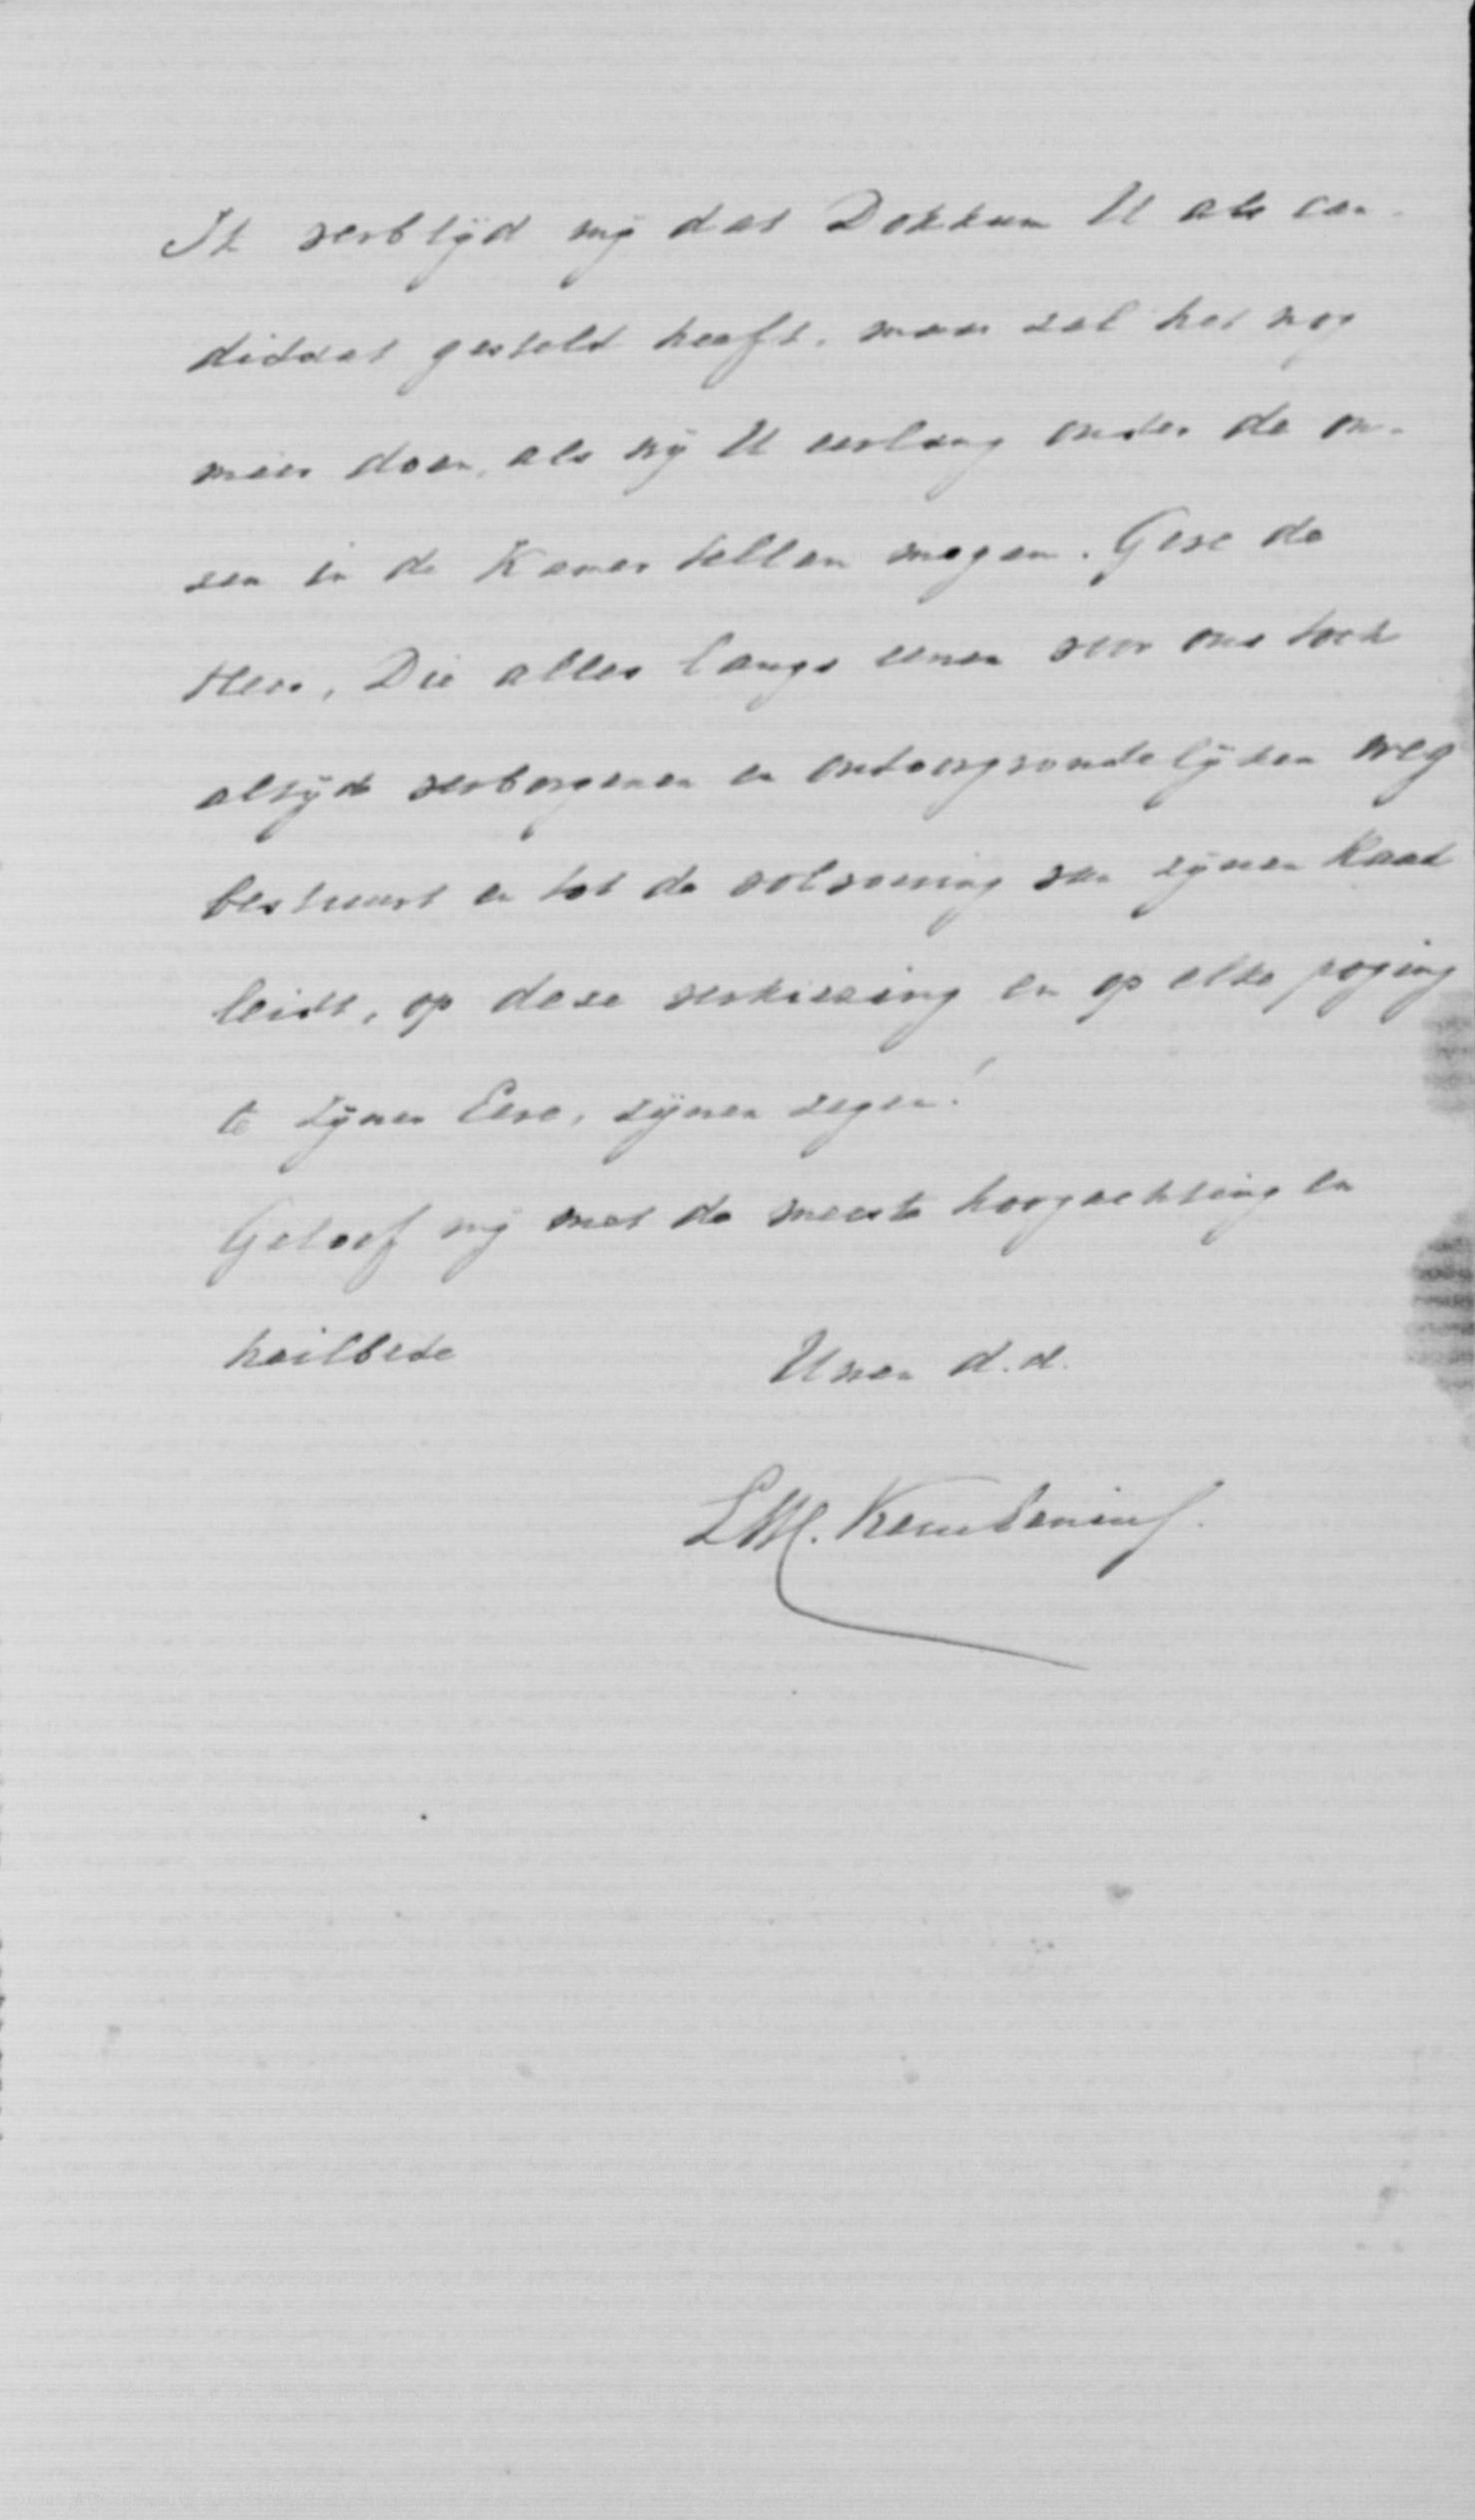 Ik verblijd mij dat Dokkum U als can-
didaat gesteld heeft, maar zal het nog
meer doen, als wij U eerlang onder de on-
zen in de Kamer tellen mogen. Geve de
Heer, Die alles langs eenen voor ons toch
altijd verborgenen en ondoorgrondelijken weg
bestuurt en tot de volvoering van zijnen Raad
leidt, op deze verkiezing en op elke poging
te zijner Eere, zijnen zegen!
Geloof mij met de meeste hoogachting en
heilbede Uwen d.d.
L.W.C. Keuchenius.